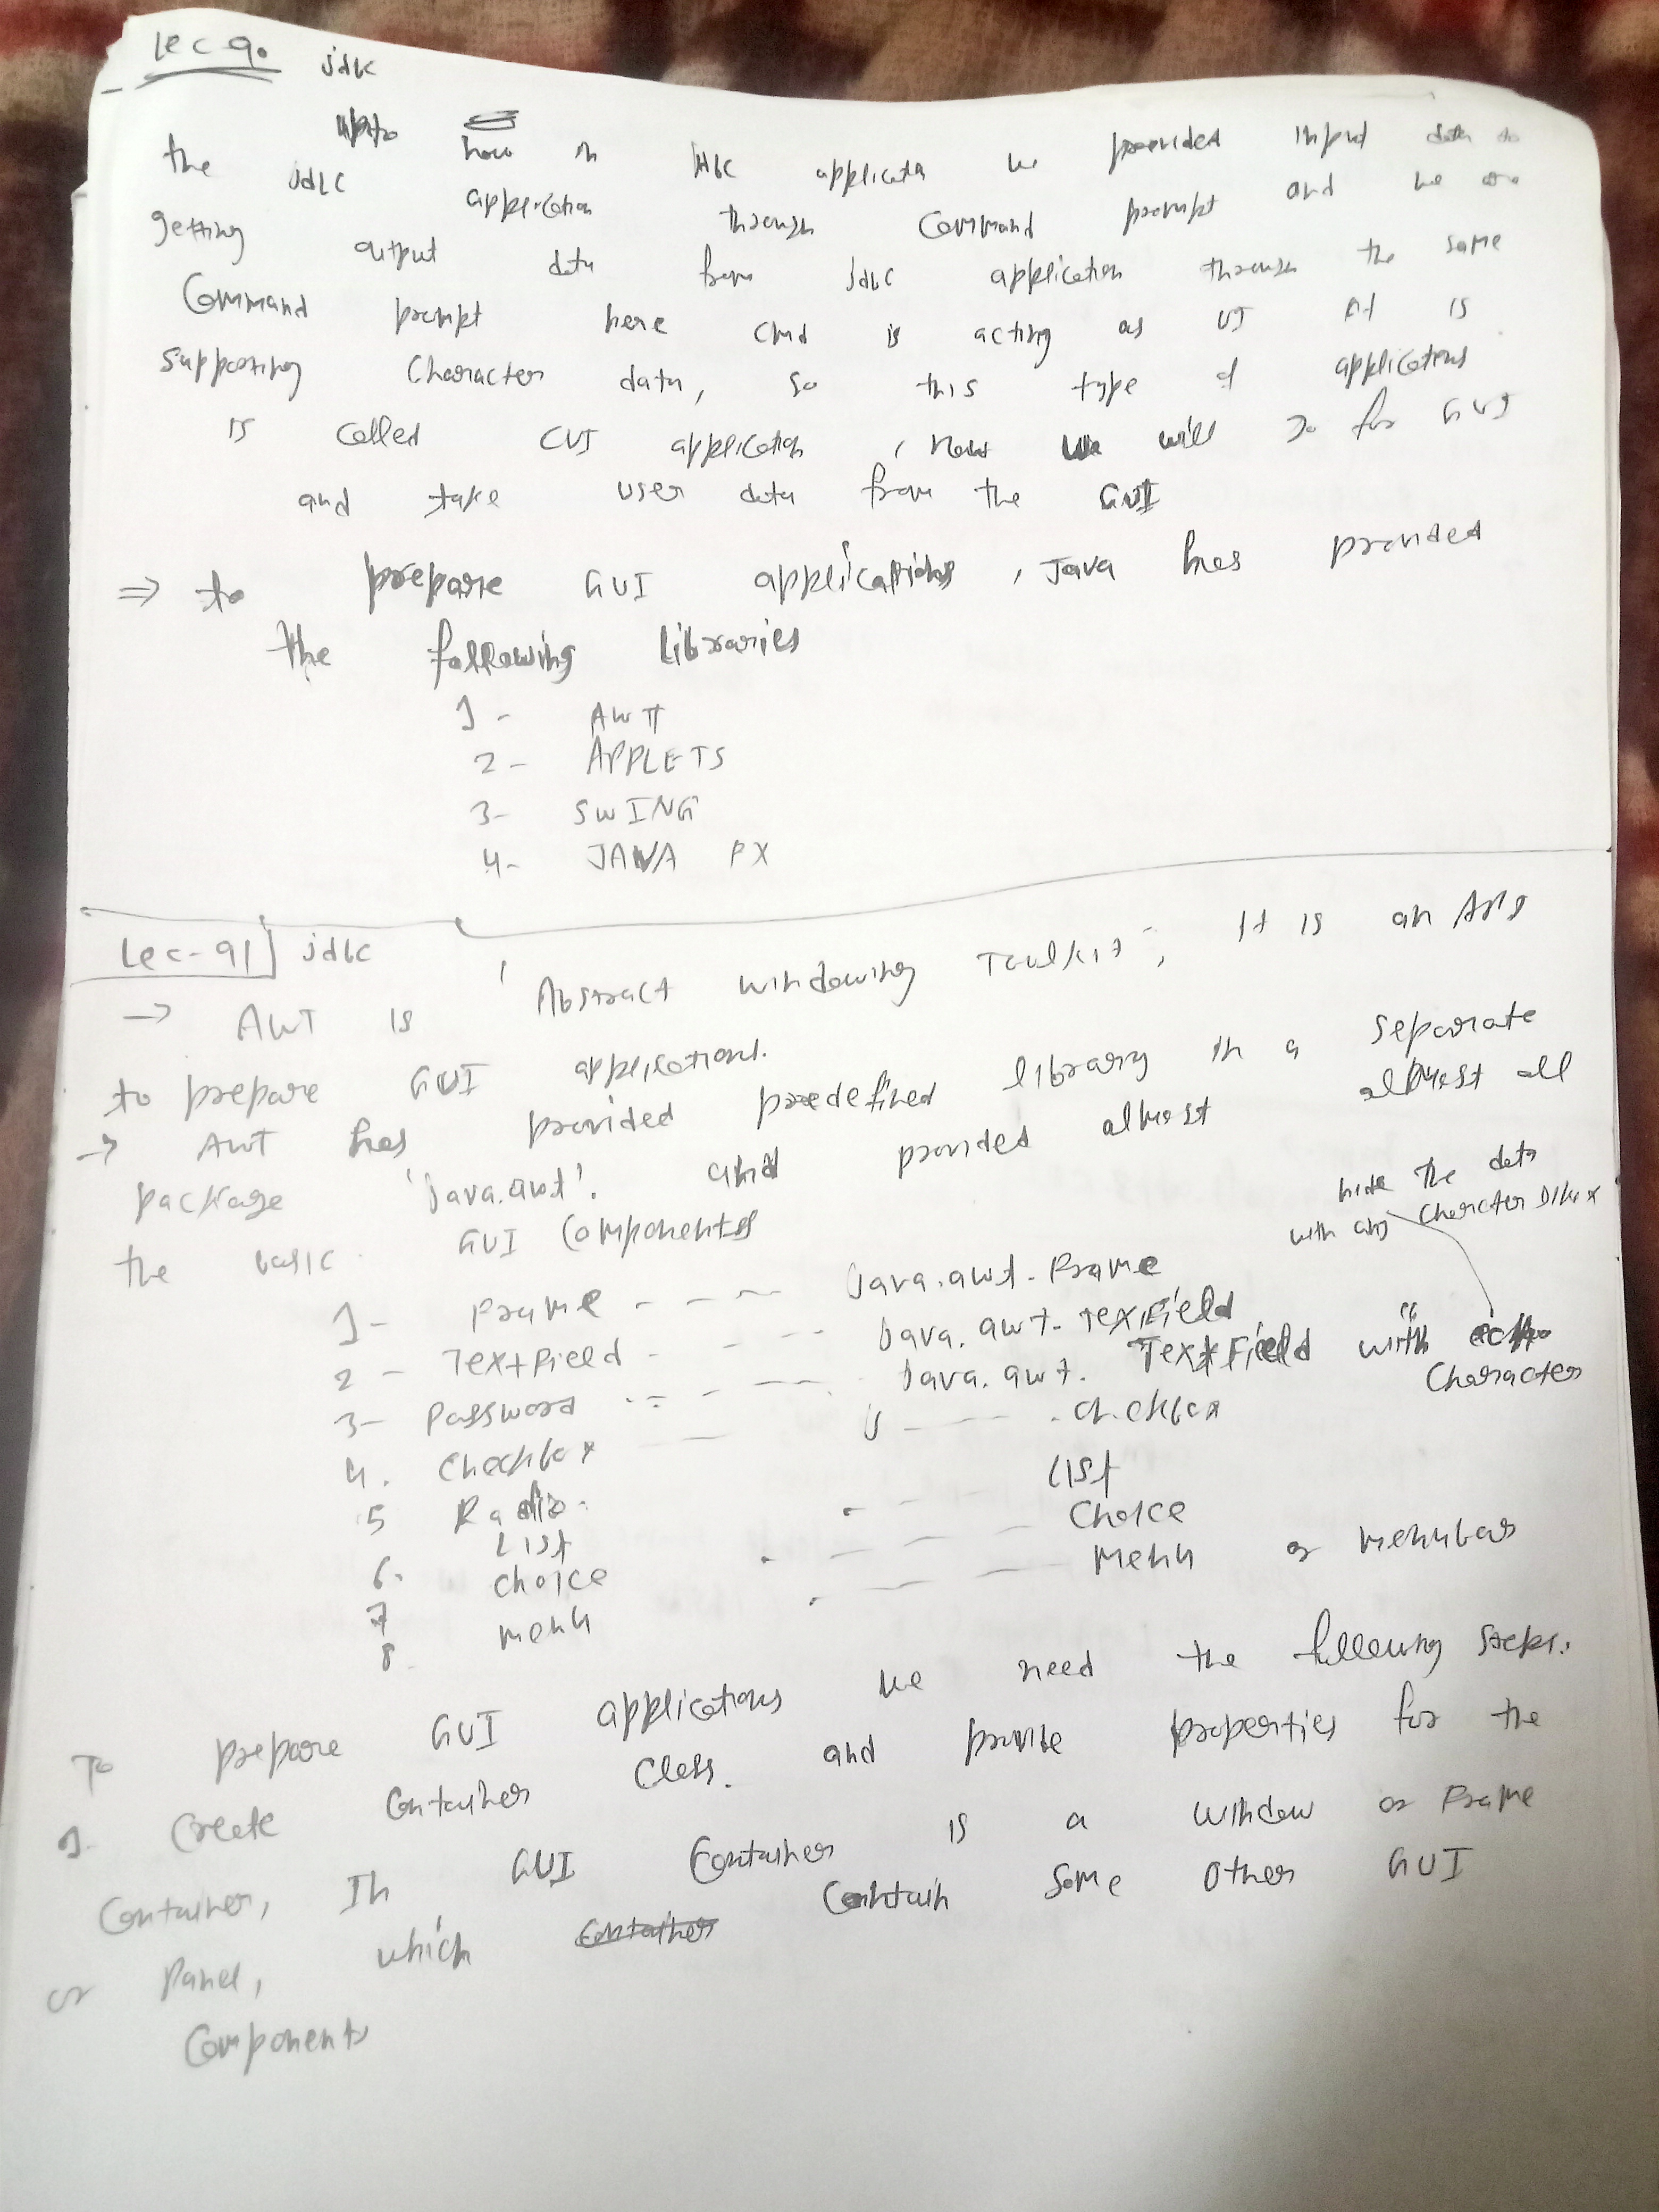 Lec 90 jdbc
upto now in jdbc applicatn we provided input data to
the jdbc application through Command prompt and we are
getting output data from jdbc application through the same
Command prompt here cmd is acting as UI it is
supporting Character data, so this type of applications
is called CUI application, now we will go for GUI
and take user data from the GUI
⇒ to prepare GUI applications, Java has provided
the following libraries
1 - AWT
2 - APPLETS
3- SWING
4- JAVA FX
Lec-91 jdbc
→ AWT is 'Abstract windowing Toolkit', It is an API
to prepare GUI applications.
→ AWT has provided predefined library in a separate
package 'java.awt'. and provided almost almost all
the basic GUI Components
hide the data
with any Character Dlike x
1- Frame - - - - java.awt.Frame
2 - TextField - - - - java.awt.TextField
3- Password - - - - java.awt. TextField with "echo
Character
4. Checkbox - - - - " - - - . checkbox
5 Radio.
6. List . - - - List
7 choice . - - - Choice
8. menu . - - - Menu or menubar
To prepare GUI applications we need the following steps.
1. Create Container Class. and provide properties for the
Container, In GUI Container is a window or Frame
or Panel, which Contain some other GUI
Components